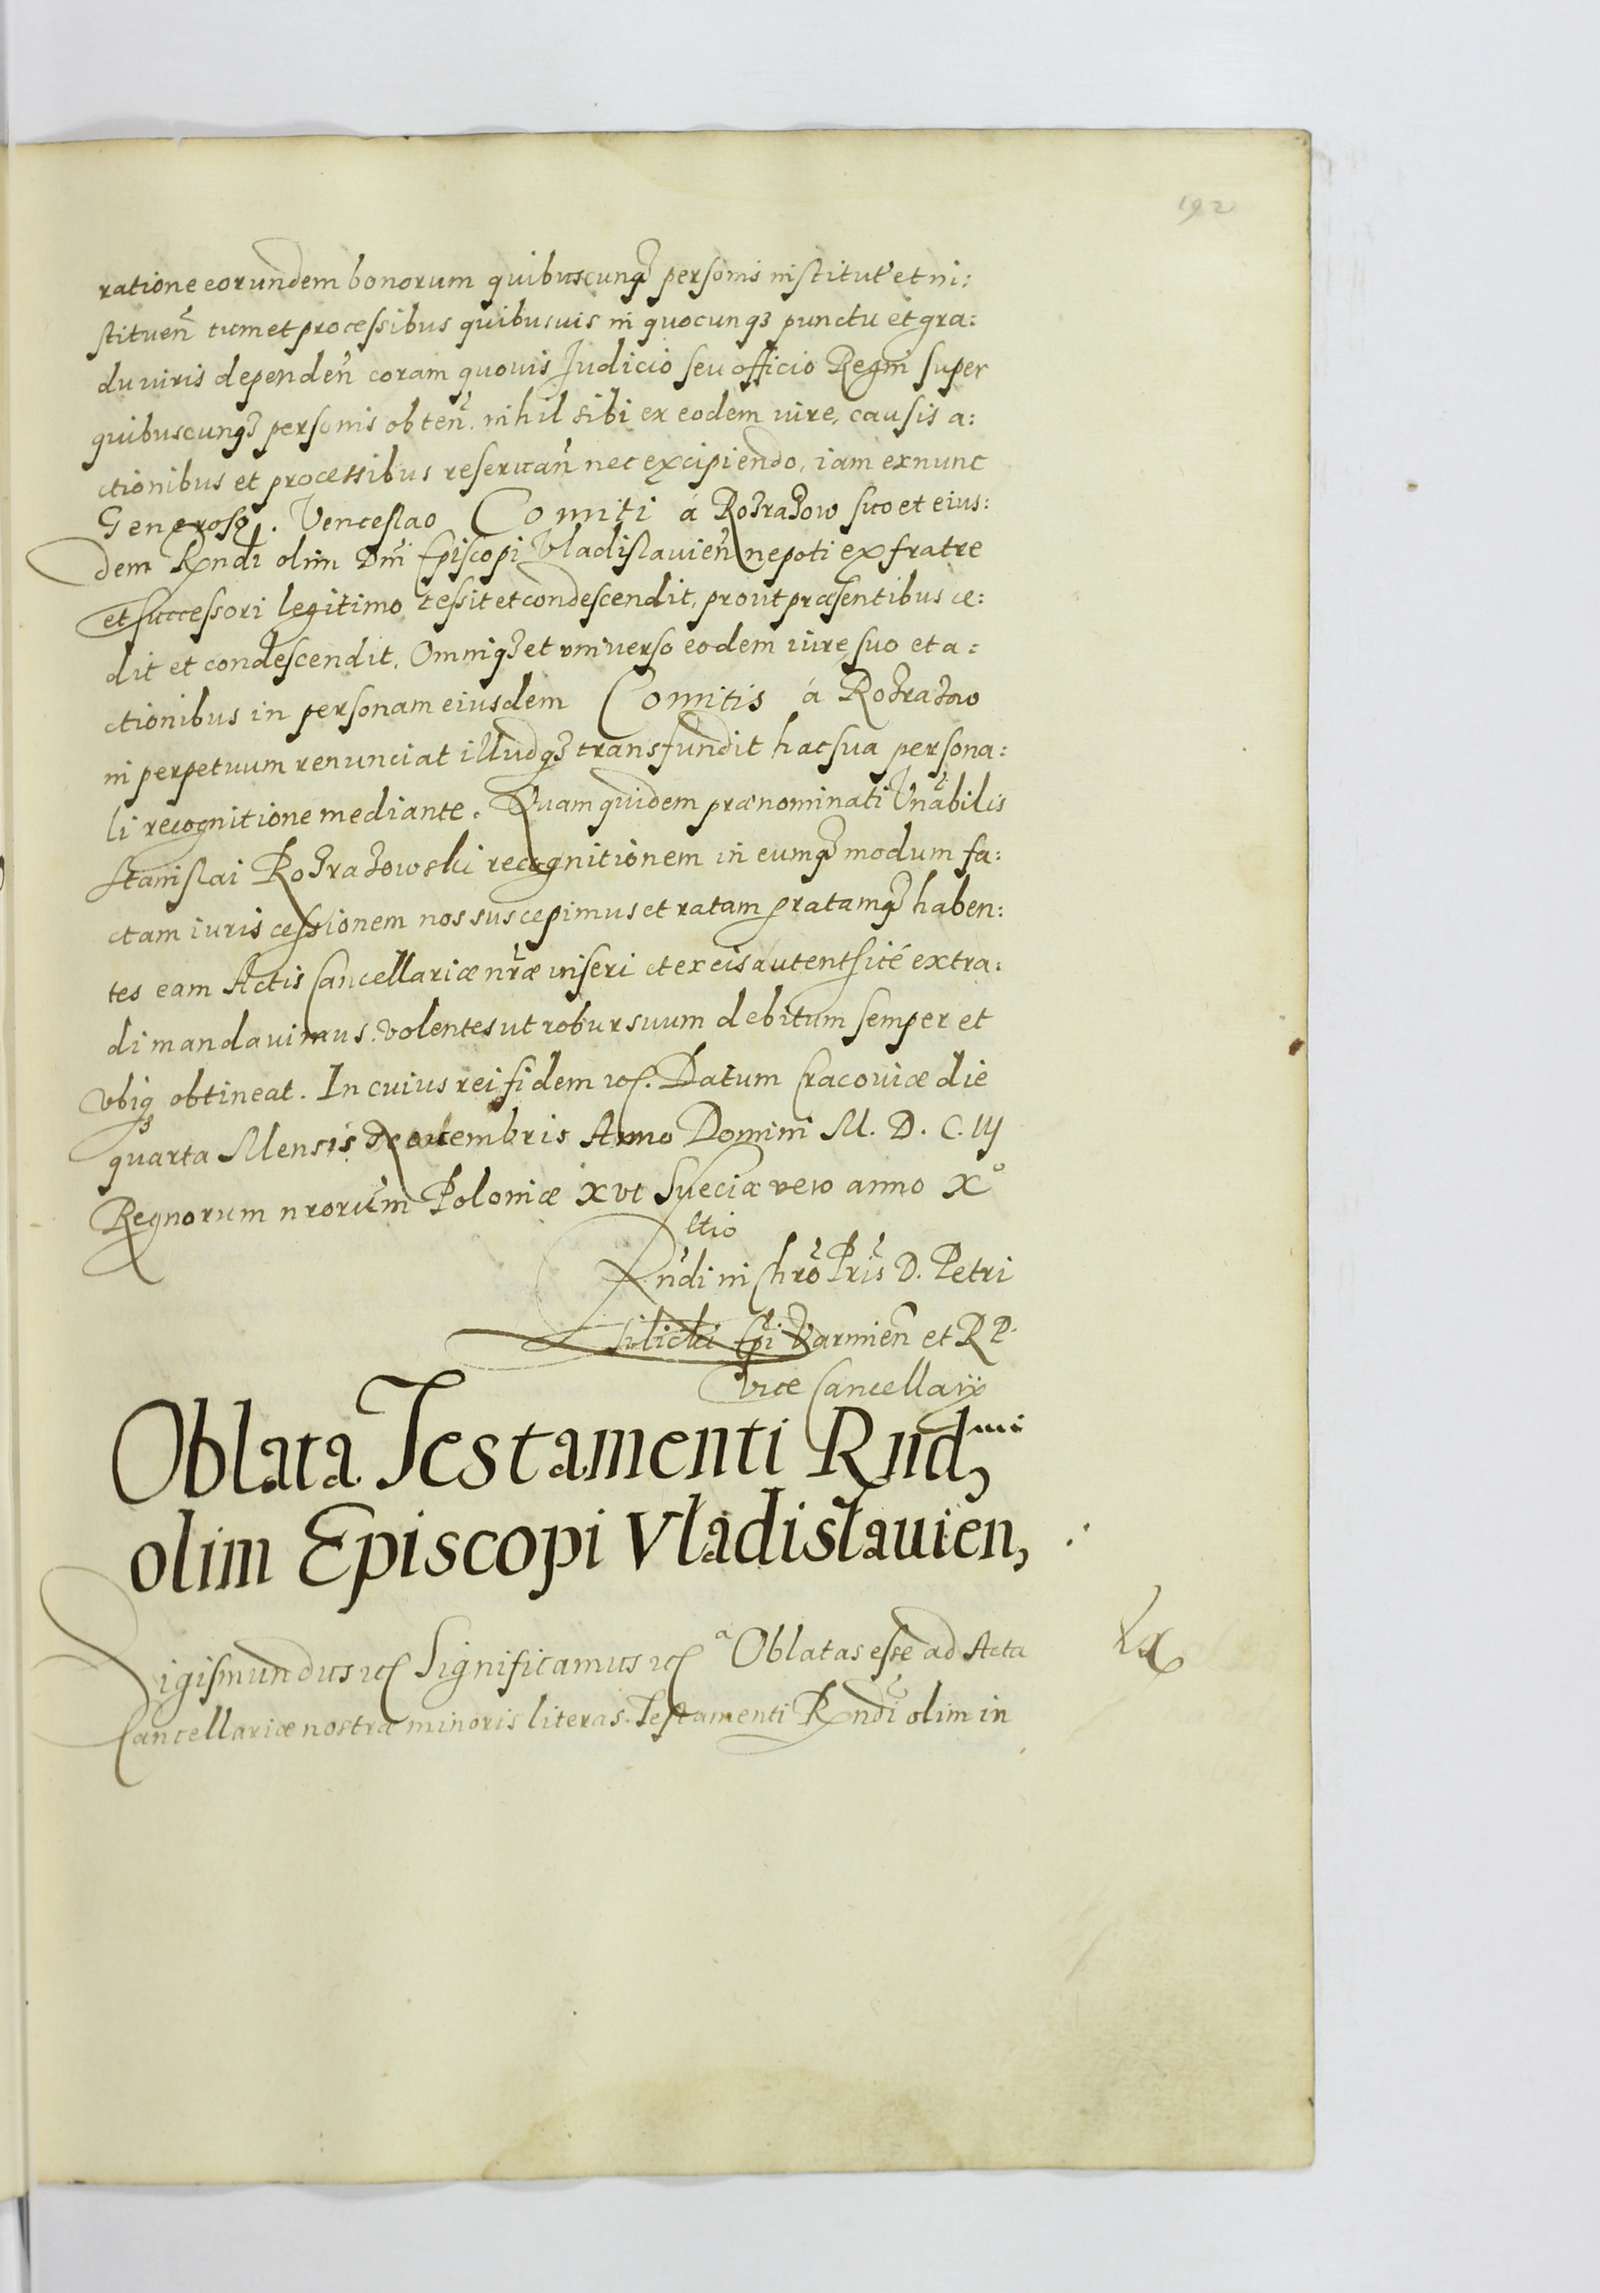 192
ratione eorundem bonorum quibuscunq₃ personis institut' et in:
stituen̄ tum et processibus quibusuis in quocunq₃ punctu et gra:
du iuris dependen̄ coram quouis Judicio seu officio Regni super
quibuscunq₃ personis obten̄. nihil sibi ex eodem iure, causis a:
ctionibus et processibus reseruan̄ nec excipiendo, iam ex nunc
Generoso. Venceslao Comiti á Rozrazow suo et eius:
dem Rndi olim Dni Episcopi Vladislauien̄ nepoti ex fratre
et successori legitimo cessit et condescendit, prout præsentibus ce:
dit et condescendit, Omniq₃ et vniuerso eodem iure suo et a:
ctionibus in personam eiusdem Comitis á Rozrazow
in perpetuum renunciat illudq₃ transfundit hac sua persona:
li recognitione mediante. Quam quidem prænominati Vnābilis
Stanislai Rozrazowski recognitionem in eumq₃ modum fa:
ctam iuris cessionem nos suscepimus et ratam gratamq₃ haben:
tes eam Actis Cancellariæ nr̄æ inseri et ex eis autentficé extra:
di mandauimus. volentes ut robur suum debitum semper et
vbiq₃ obtineat. In cuius rei fidem etc. Datum Cracouiæ die
quarta Mensis Decembris Anno Domini M. D. C. IIJ
Regnorum nrorum Poloniæ XVI Sueciæ vero anno X°
Rltio
Rn̄di in Chrō Pris D. Petri
Tilicki Epi Varmien̄ et R P.
vice Cancellarij
Oblata Testamenti Rnd^mi
olim Episcopi Vladislauien,
Sigismundus etc Significamus etc ^a Oblatas esse ad Acta
Cancellariæ nostræ minoris literas Testamenti Rndi olim in